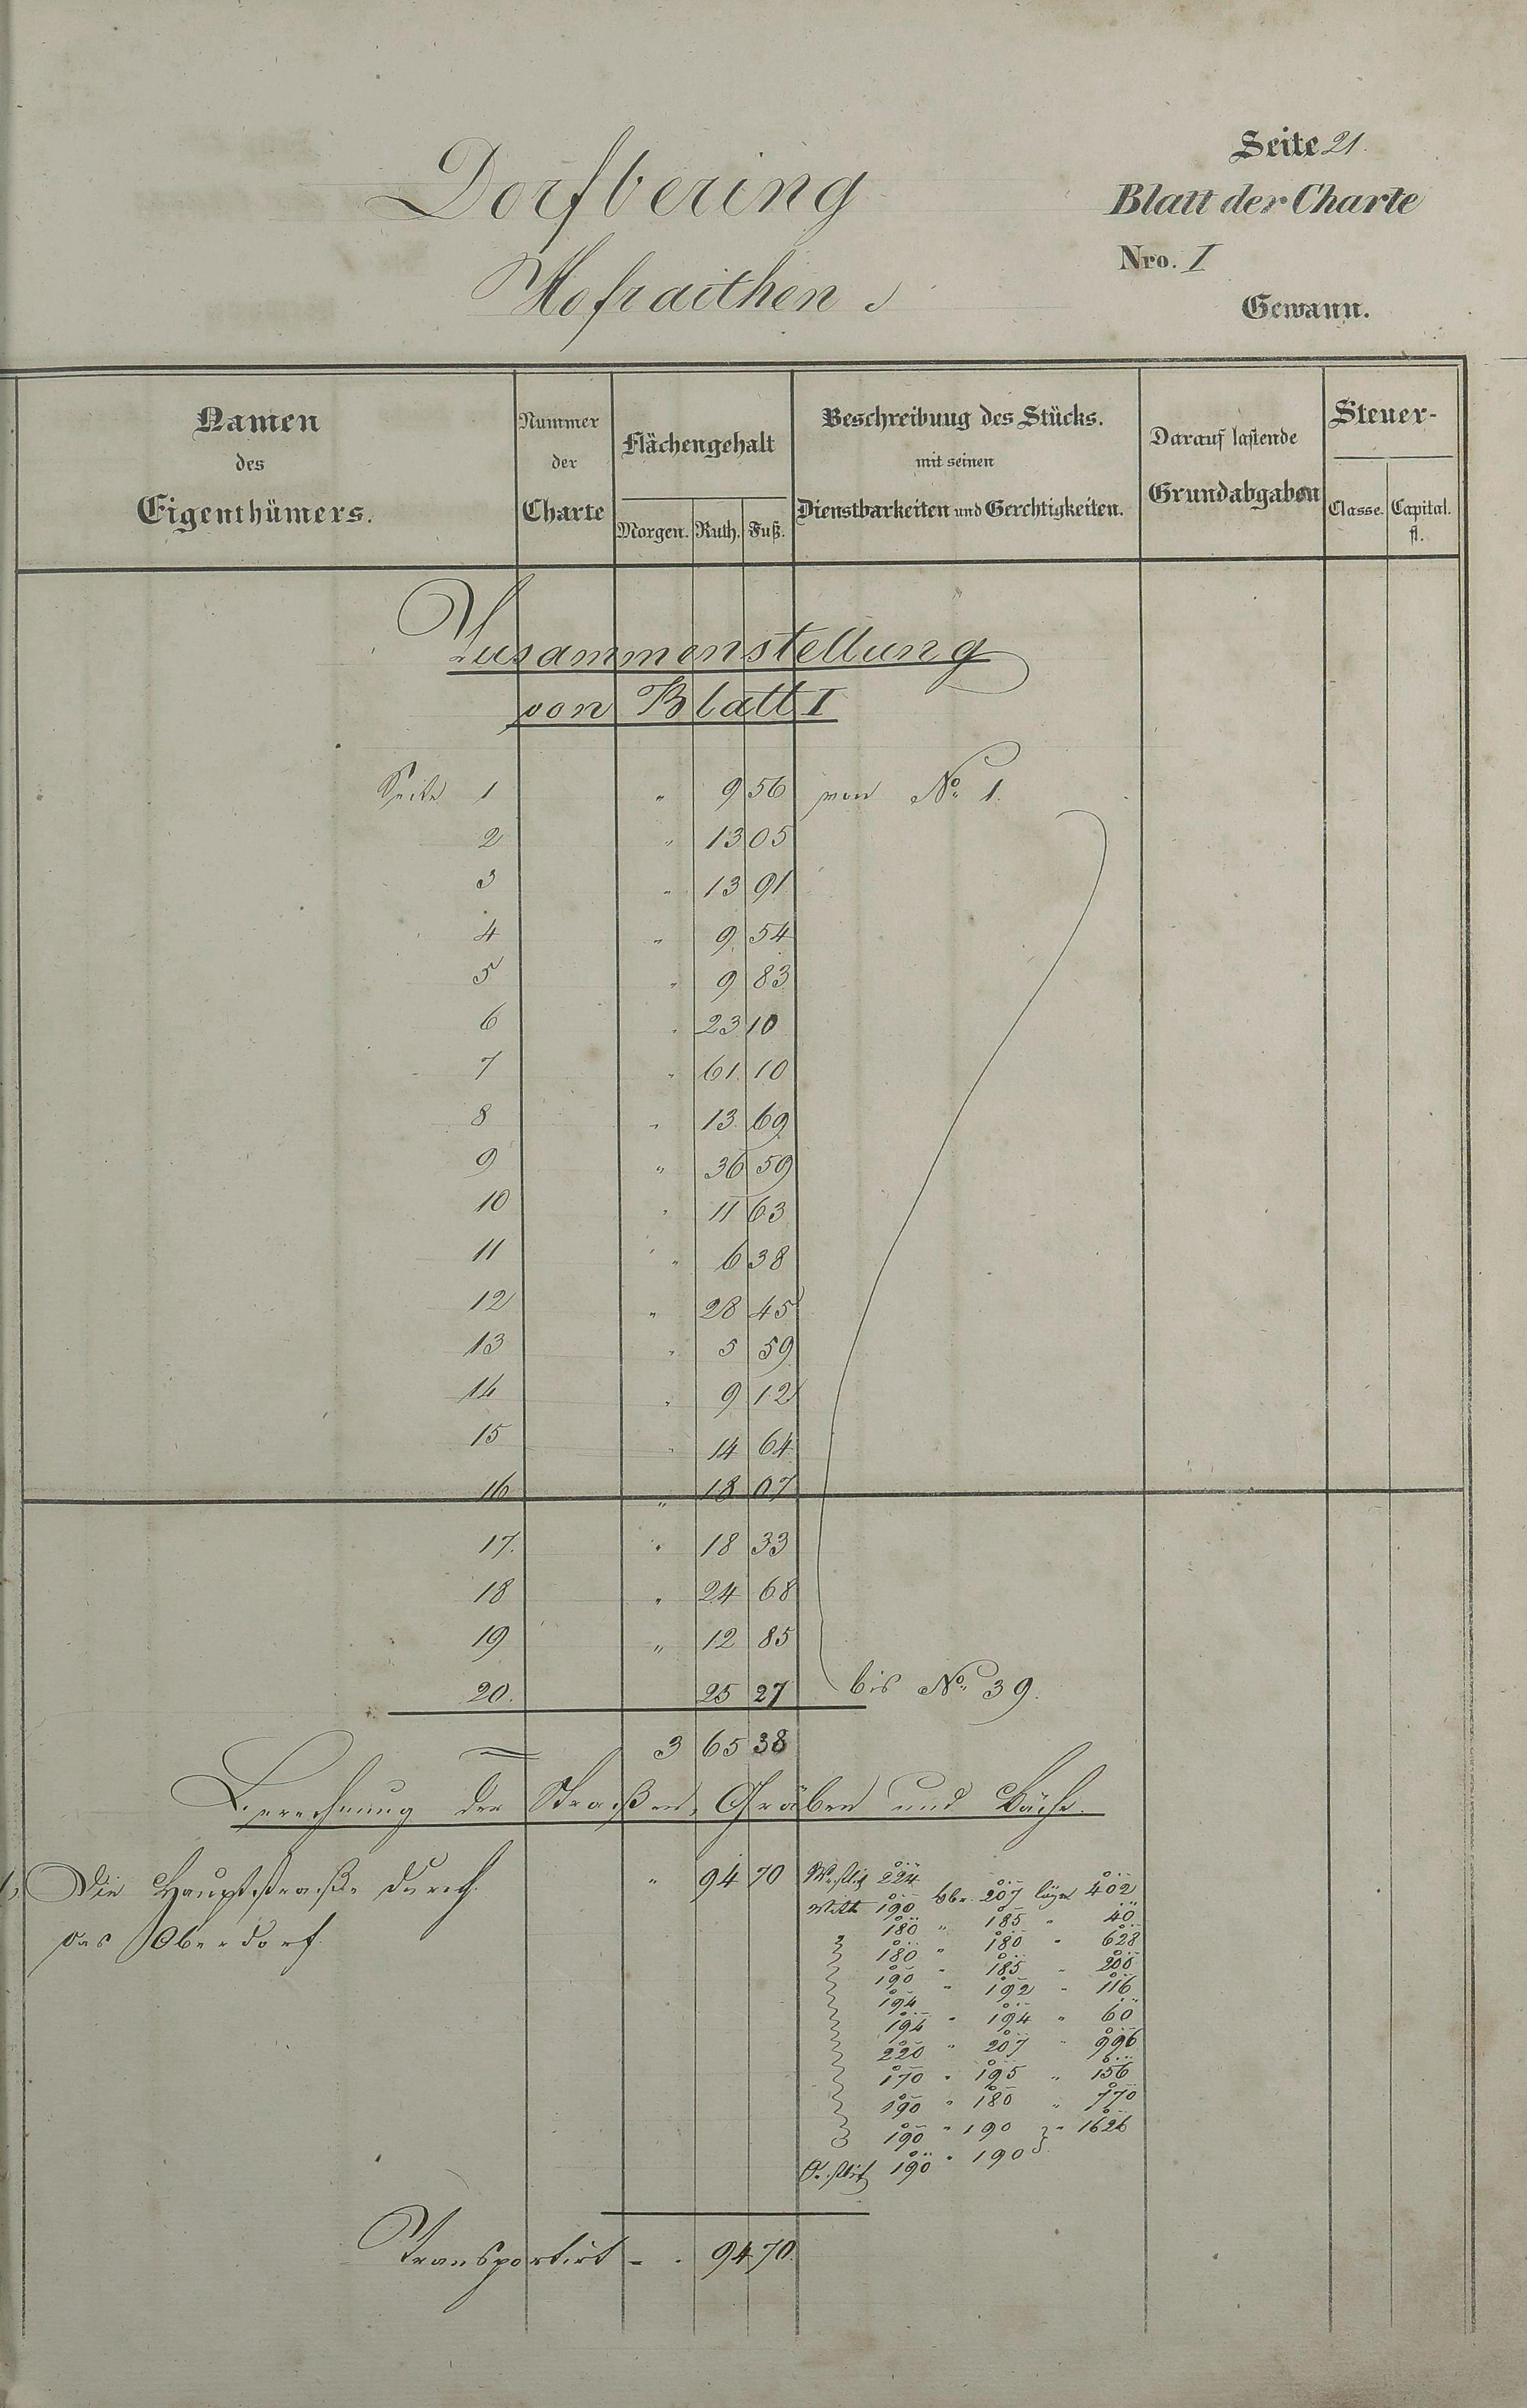 Seite 21.
Dorfbering
Blatt der Charte
Nro. I
Hofraithen
Gewann.
Namen des Eigenthümers.
Nummer der Charte
Flächengehalt
Morgen. Ruth. Fuß.
Beschreibung des Stücks.
mit seinen
Dienstbarkeiten und Gerchtigkeiten.
Darauf lastende
Grundabgaben
Steuer-
Classe. Capital.
fl.
Zusammenstellung
von Blatt I
Seite 1 " 9 56 von No. 1.
2 " 13 05
3 " 13 91
4 " 9 54
5 " 9 83
6 " 23 10
7 " 61 10
8 " 13 69
9 " 36 59
10 " 11 63
11 " 6 38
12 " 28 45
13 " 5 59
14 " 9 12
15 " 14 64
16 " 18 07
17. " 18 33
18 " 24 68
19 " 12 85
20. 25 27 bis No. 39.
3 65 38
Berechnung der Straßen, Gräben und Bäche.
1, Die Hauptstraße durch " 94 70 Westlich 224
das Oberdorf.
Mitt. 190 br. 207 länge 402
180 " 185 " 40
180 " 180 " 628
190 " 185 " 200
194 " 192 " 116
194 " 194 " 60
220 " 207 " 996
170 " 195 " 156
190 " 180 " 770
190 " 190 " 1626
Östlich 190 " 190
Transportirt - . 94 70.